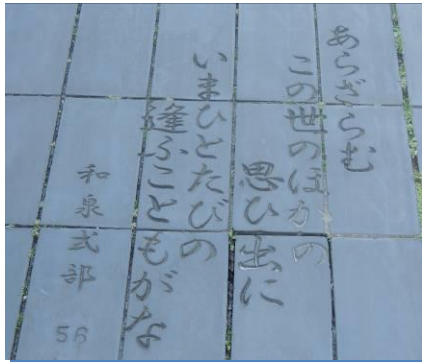 あらざらむ
この世のほかの
思ひ出に
いまひとたびの
逢ふこともがな
和泉式部
56